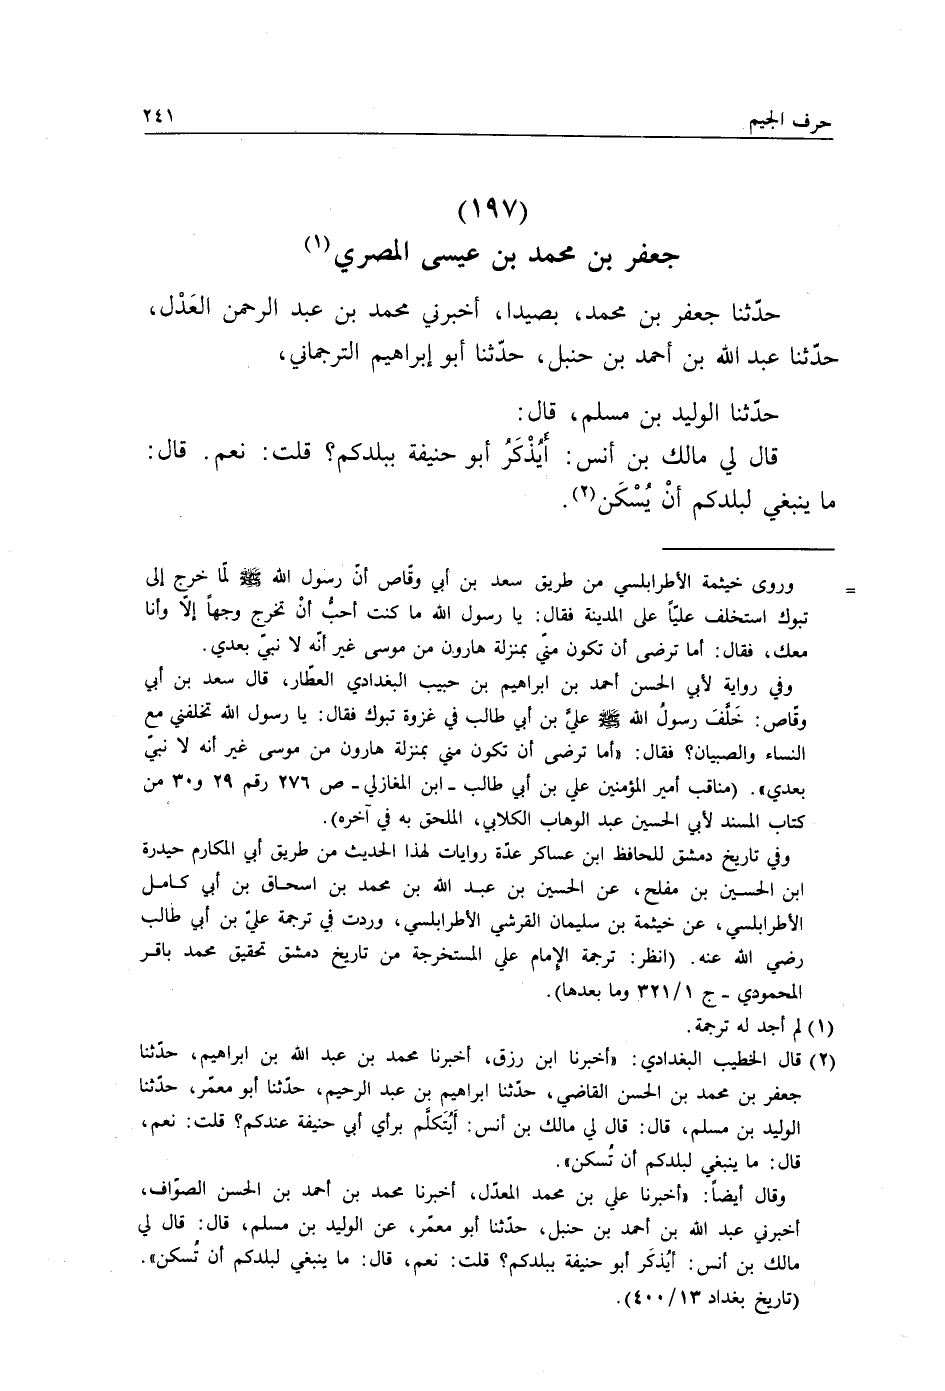 حرف الجيم ٢٤١
(١٩٧)
جعفر بن محمد بن عيسى المصري(١)
حدّثنا جعفر بن محمد، بصيدا، أخبرني محمد بن عبد الرحمن العَدْل،
حدّثنا عبد الله بن أحمد بن حنبل، حدّثنا أبو إبراهيم الترجماني،
حدّثنا الوليد بن مسلم، قال:
قال لي مالك بن أنس: أَيُذْكَرُ أبو حنيفة ببلدكم؟ قلت: نعم. قال:
ما ينبغي لبلدكم أنْ يُسْكَن(٢).
= وروى خيثمة الأطرابلسي من طريق سعد بن أبي وقّاص أنّ رسول الله ﷺ لمّا خرج إلى
تبوك استخلف عليّاً على المدينة فقال: يا رسول الله ما كنت أحبُّ أنْ تخرج وجهاً إلّا وأنا
معك، فقال: أما ترضى أن تكون منّي بمنزلة هارون من موسى غير أنّه لا نبيّ بعدي.
وفي رواية لأبي الحسن أحمد بن ابراهيم بن حبيب البغدادي العطّار، قال سعد بن أبي
وقّاص: خَلَّفَ رسولُ الله ﷺ عليَّ بن أبي طالب في غزوة تبوك فقال: يا رسول الله تخلفني مع
النساء والصبيان؟ فقال: «أما ترضى أن تكون مني بمنزلة هارون من موسى غير أنه لا نبيّ
بعدي». (مناقب أمير المؤمنين علي بن أبي طالب ـ ابن المغازلي ـ ص ٢٧٦ رقم ٢٩ و٣٠ من
كتاب المسند لأبي الحسين عبد الوهاب الكلابي، الملحق به في آخره).
وفي تاريخ دمشق للحافظ ابن عساكر عدّة روايات لهذا الحديث من طريق أبي المكارم حيدرة
ابن الحسين بن مفلح، عن الحسين بن عبد الله بن محمد بن اسحاق بن أبي كامل
الأطرابلسي، عن خيثمة بن سليمان القرشي الأطرابلسي، وردت في ترجمة عليّ بن أبي طالب
رضي الله عنه. (انظر: ترجمة الإمام علي المستخرجة من تاريخ دمشق تحقيق محمد باقر
المحمودي ـ ج ١/٣٢١ وما بعدها).
(١) لم أجد له ترجمة.
(٢) قال الخطيب البغدادي: «أخبرنا ابن رزق، أخبرنا محمد بن عبد الله بن ابراهيم، حدّثنا
جعفر بن محمد بن الحسن القاضي، حدّثنا ابراهيم بن عبد الرحيم، حدّثنا أبو معمّر، حدّثنا
الوليد بن مسلم، قال: قال لي مالك بن أنس: أَيُتَكلَّم برأي أبي حنيفة عندكم؟ قلت: نعم،
قال: ما ينبغي لبلدكم أن تُسكن».
وقال أيضاً: «أخبرنا علي بن محمد المعدّل، أخبرنا محمد بن أحمد بن الحسن الصوّاف،
أخبرني عبد الله بن أحمد بن حنبل، حدّثنا أبو معمّر، عن الوليد بن مسلم، قال: قال لي
مالك بن أنس: أيُذكَر أبو حنيفة ببلدكم؟ قلت: نعم، قال: ما ينبغي لبلدكم أن تُسكن».
(تاريخ بغداد ١٣/٤٠٠).